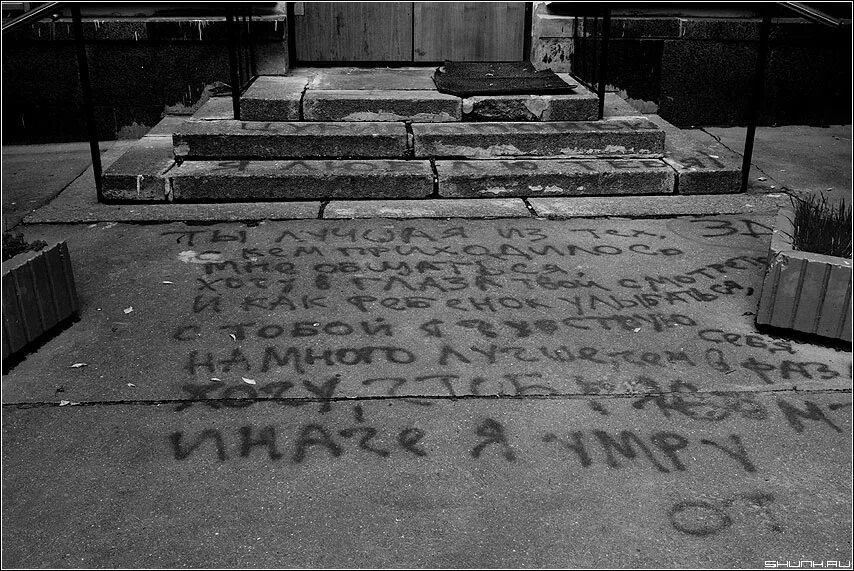 ТЫ ЛУЧШАЯ ИЗ ТЕХ,
С КЕМ ПРИХОДИЛОСЬ
МНЕ ОБЩАТЬСЯ.
ХОЧУ В ГЛАЗА ТВОИ СМОТРЕТЬ
И КАК РЕБЕНОК УЛЫБАТЬСЯ,
С ТОБОЙ Я ЧУВСТВУЮ СЕБЯ
НАМНОГО ЛУЧШЕ ЧЕМ В РАЗ
ХОЧУ
ИНАЧЕ Я УМРУ
ОТ
SHUNK.RU